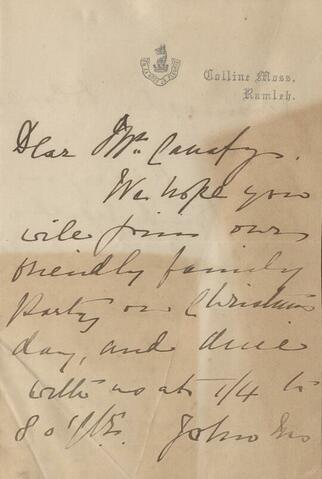 Colline Moss,
Ramleh.
Dear Mr. Cavafy.
We hope you
will join our
friendly family
Party on Christmas
day, and dine
with us at 1/4 to
8 o'
John